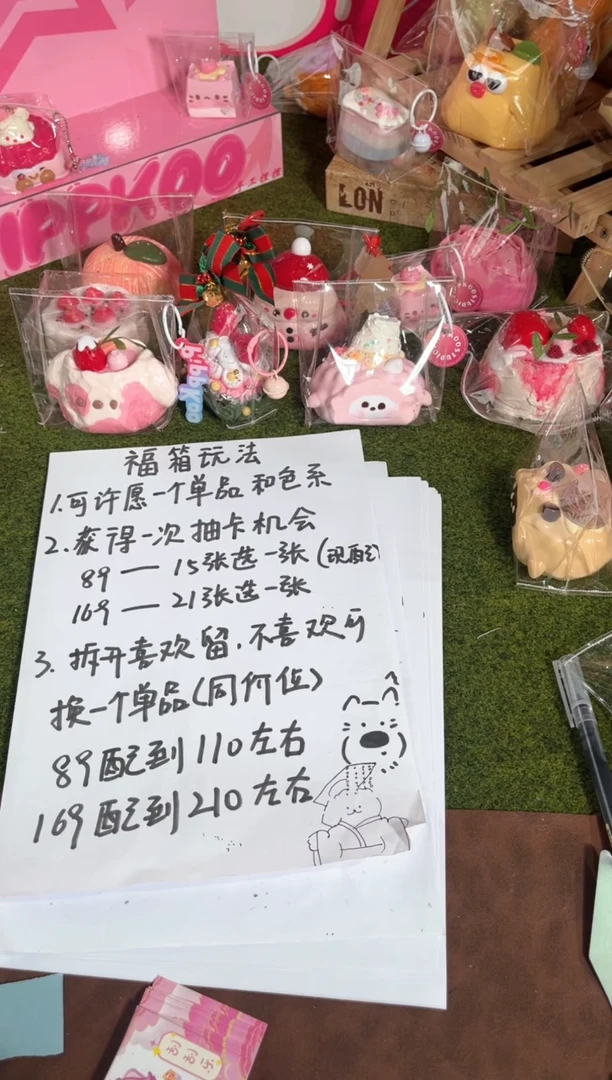 IPPKOO
手工捏捏
LON
bibbkoo
福箱玩法
1.可许愿一个单品和色系
2.获得一次抽卡机会
89 — 15张选一张(现配)
169 — 21张选一张
3.拆开喜欢留,不喜欢可
换一个单品(同价位)
89配到110左右
169配到210左右
刮刮乐